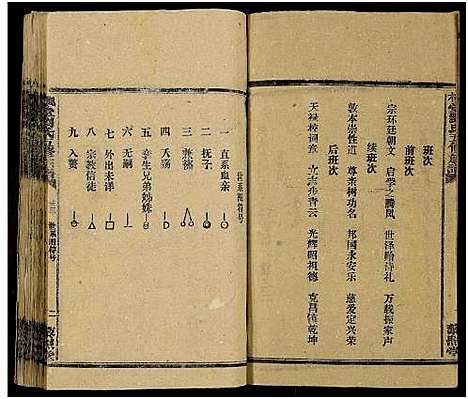 班次
前班次
宗环廷朝文　启学之腾凤　世泽贻诗礼　万载振家声
续班次
敦本崇性道　尊亲树功名　邦国永安乐　慈爱定兴荣
后班次
天禄校词　立志步青云　光辉昭祖德　克昌镇乾坤
世系图符号
一　直系血亲
二　抚子
三　兼祧
四　夭殇
五　孪生兄弟姊妹
六　无嗣
七　外出未详
八　宗教信徒
九　入赘
世系图符号
二